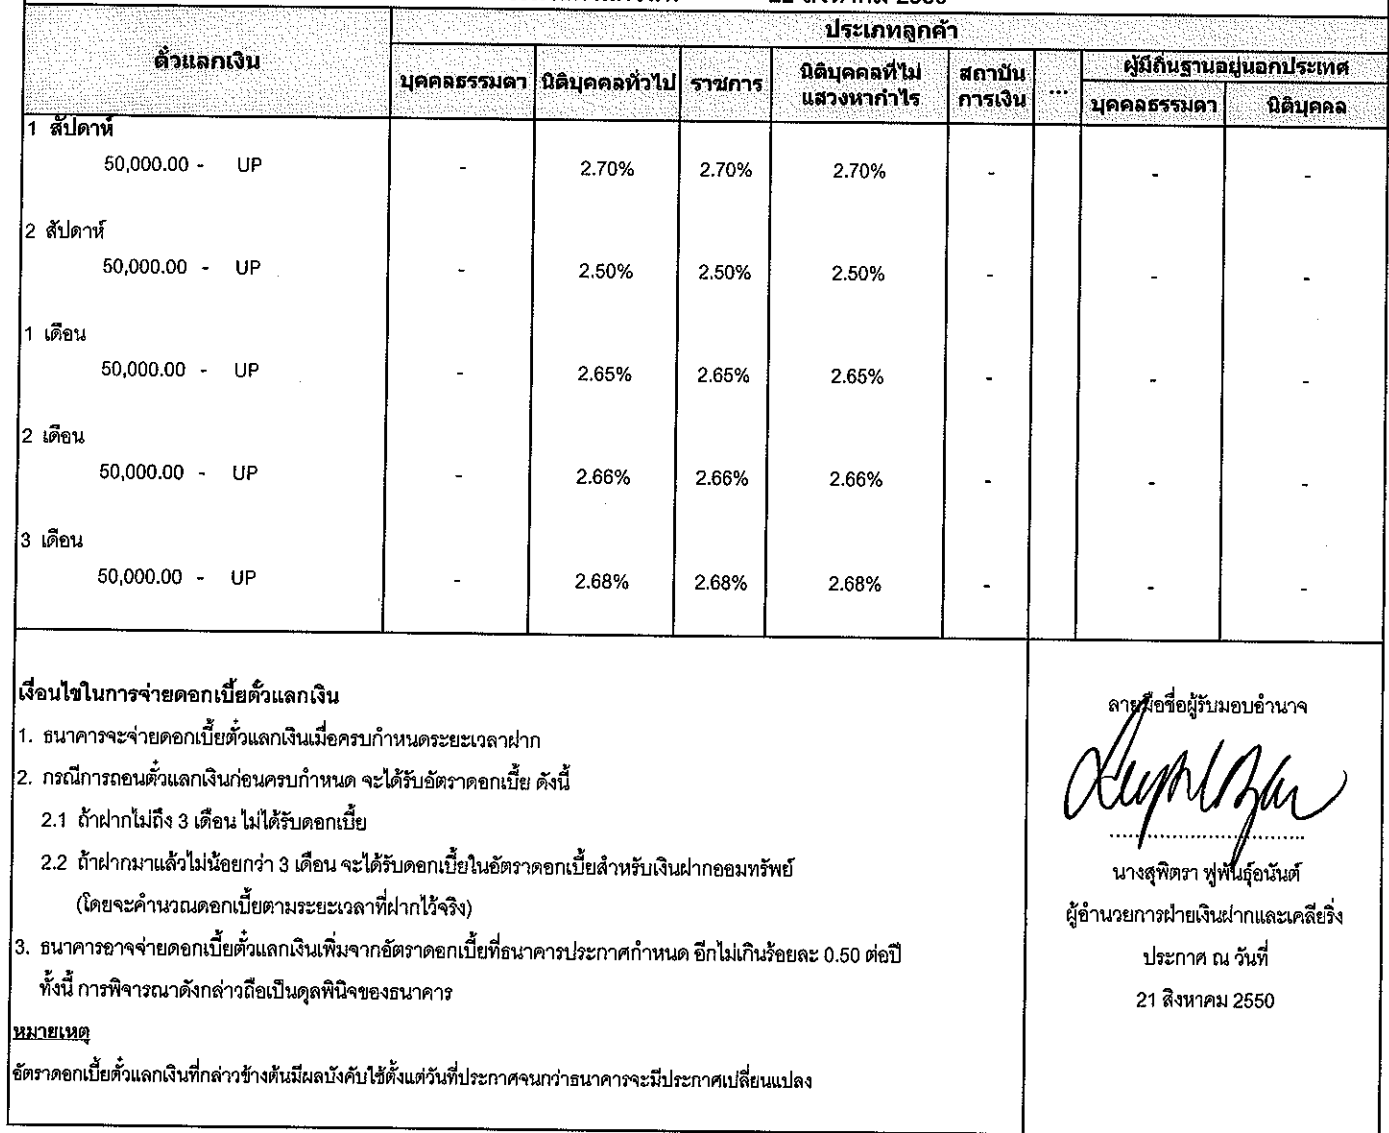 ตั๋วแลกเงิน
ประเภทลูกค้า
บุคคลธรรมดา นิติบุคคลทั่วไป ราชการ นิติบุคคลที่ไม่แสวงหากำไร สถาบันการเงิน ... ผู้มีถิ่นฐานอยู่นอกประเทศ
บุคคลธรรมดา นิติบุคคล
1 สัปดาห์
50,000.00 - UP - 2.70% 2.70% 2.70% - - -
2 สัปดาห์
50,000.00 - UP - 2.50% 2.50% 2.50% - - -
1 เดือน
50,000.00 - UP - 2.65% 2.65% 2.65% - - -
2 เดือน
50,000.00 - UP - 2.66% 2.66% 2.66% - - -
3 เดือน
50,000.00 - UP - 2.68% 2.68% 2.68% - - -
เงื่อนไขในการจ่ายดอกเบี้ยตั๋วแลกเงิน
1. ธนาคารจะจ่ายดอกเบี้ยตั๋วแลกเงินเมื่อครบกำหนดระยะเวลาฝาก
2. กรณีการถอนตั๋วแลกเงินก่อนครบกำหนด จะได้รับอัตราดอกเบี้ย ดังนี้
2.1 ถ้าฝากไม่ถึง 3 เดือน ไม่ได้รับดอกเบี้ย
2.2 ถ้าฝากมาแล้วไม่น้อยกว่า 3 เดือน จะได้รับดอกเบี้ยในอัตราดอกเบี้ยสำหรับเงินฝากออมทรัพย์
(โดยจะคำนวณดอกเบี้ยตามระยะเวลาที่ฝากไว้จริง)
3. ธนาคารอาจจ่ายดอกเบี้ยตั๋วแลกเงินเพิ่มจากอัตราดอกเบี้ยที่ธนาคารประกาศกำหนด อีกไม่เกินร้อยละ 0.50 ต่อปี
ทั้งนี้ การพิจารณาดังกล่าวถือเป็นดุลพินิจของธนาคาร
หมายเหตุ
อัตราดอกเบี้ยตั๋วแลกเงินที่กล่าวข้างต้นมีผลบังคับใช้ตั้งแต่วันที่ประกาศจนกว่าธนาคารจะมีประกาศเปลี่ยนแปลง
ลายมือชื่อผู้รับมอบอำนาจ
นางสุพิตรา ฟูพันธุ์อนันต์
ผู้อำนวยการฝ่ายเงินฝากและเคลียริ่ง
ประกาศ ณ วันที่
21 สิงหาคม 2550